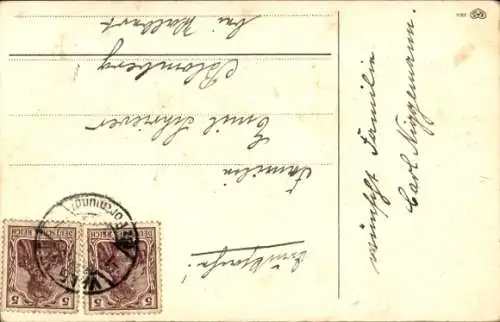 Drucksache!
Familie
Emil Schriever
Blomberg!
bei Waldort
wünscht Familie
Carl Niggemann.
DEUTSCHES REICH
5 5
DEUTSCHES REICH
5 5